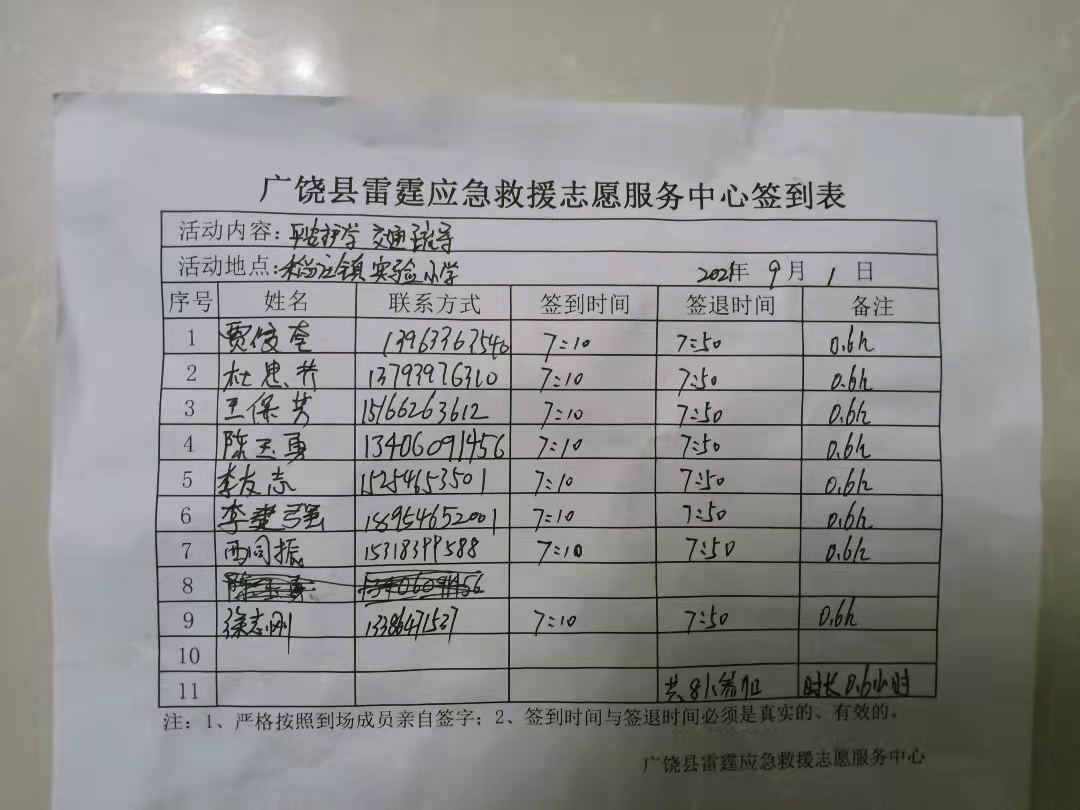 广饶县雷霆应急救援志愿服务中心签到表
活动内容：平安护学 交通疏导
活动地点：稻庄镇实验小学 2021年 9月 1日
序号 姓名 联系方式 签到时间 签退时间 备注
1 贾俊奎 13963363540 7:10 7:50 0.6h
2 杜忠井 13793976310 7:10 7:50 0.6h
3 王保芳 15166263612 7:10 7:50 0.6h
4 陈玉勇 13406091456 7:10 7:50 0.6h
5 李友志 15254653501 7:10 7:50 0.6h
6 李建强 18954652001 7:10 7:50 0.6h
7 西同振 15318399588 7:10 7:50 0.6h
8 陈玉勇 13406091456
9 徐志刚 13386471537 7:10 7:50 0.6h
10
11 共8人参加 时长0.6小时
注：1、严格按照到场成员亲自签字；2、签到时间与签退时间必须是真实的、有效的。
广饶县雷霆应急救援志愿服务中心